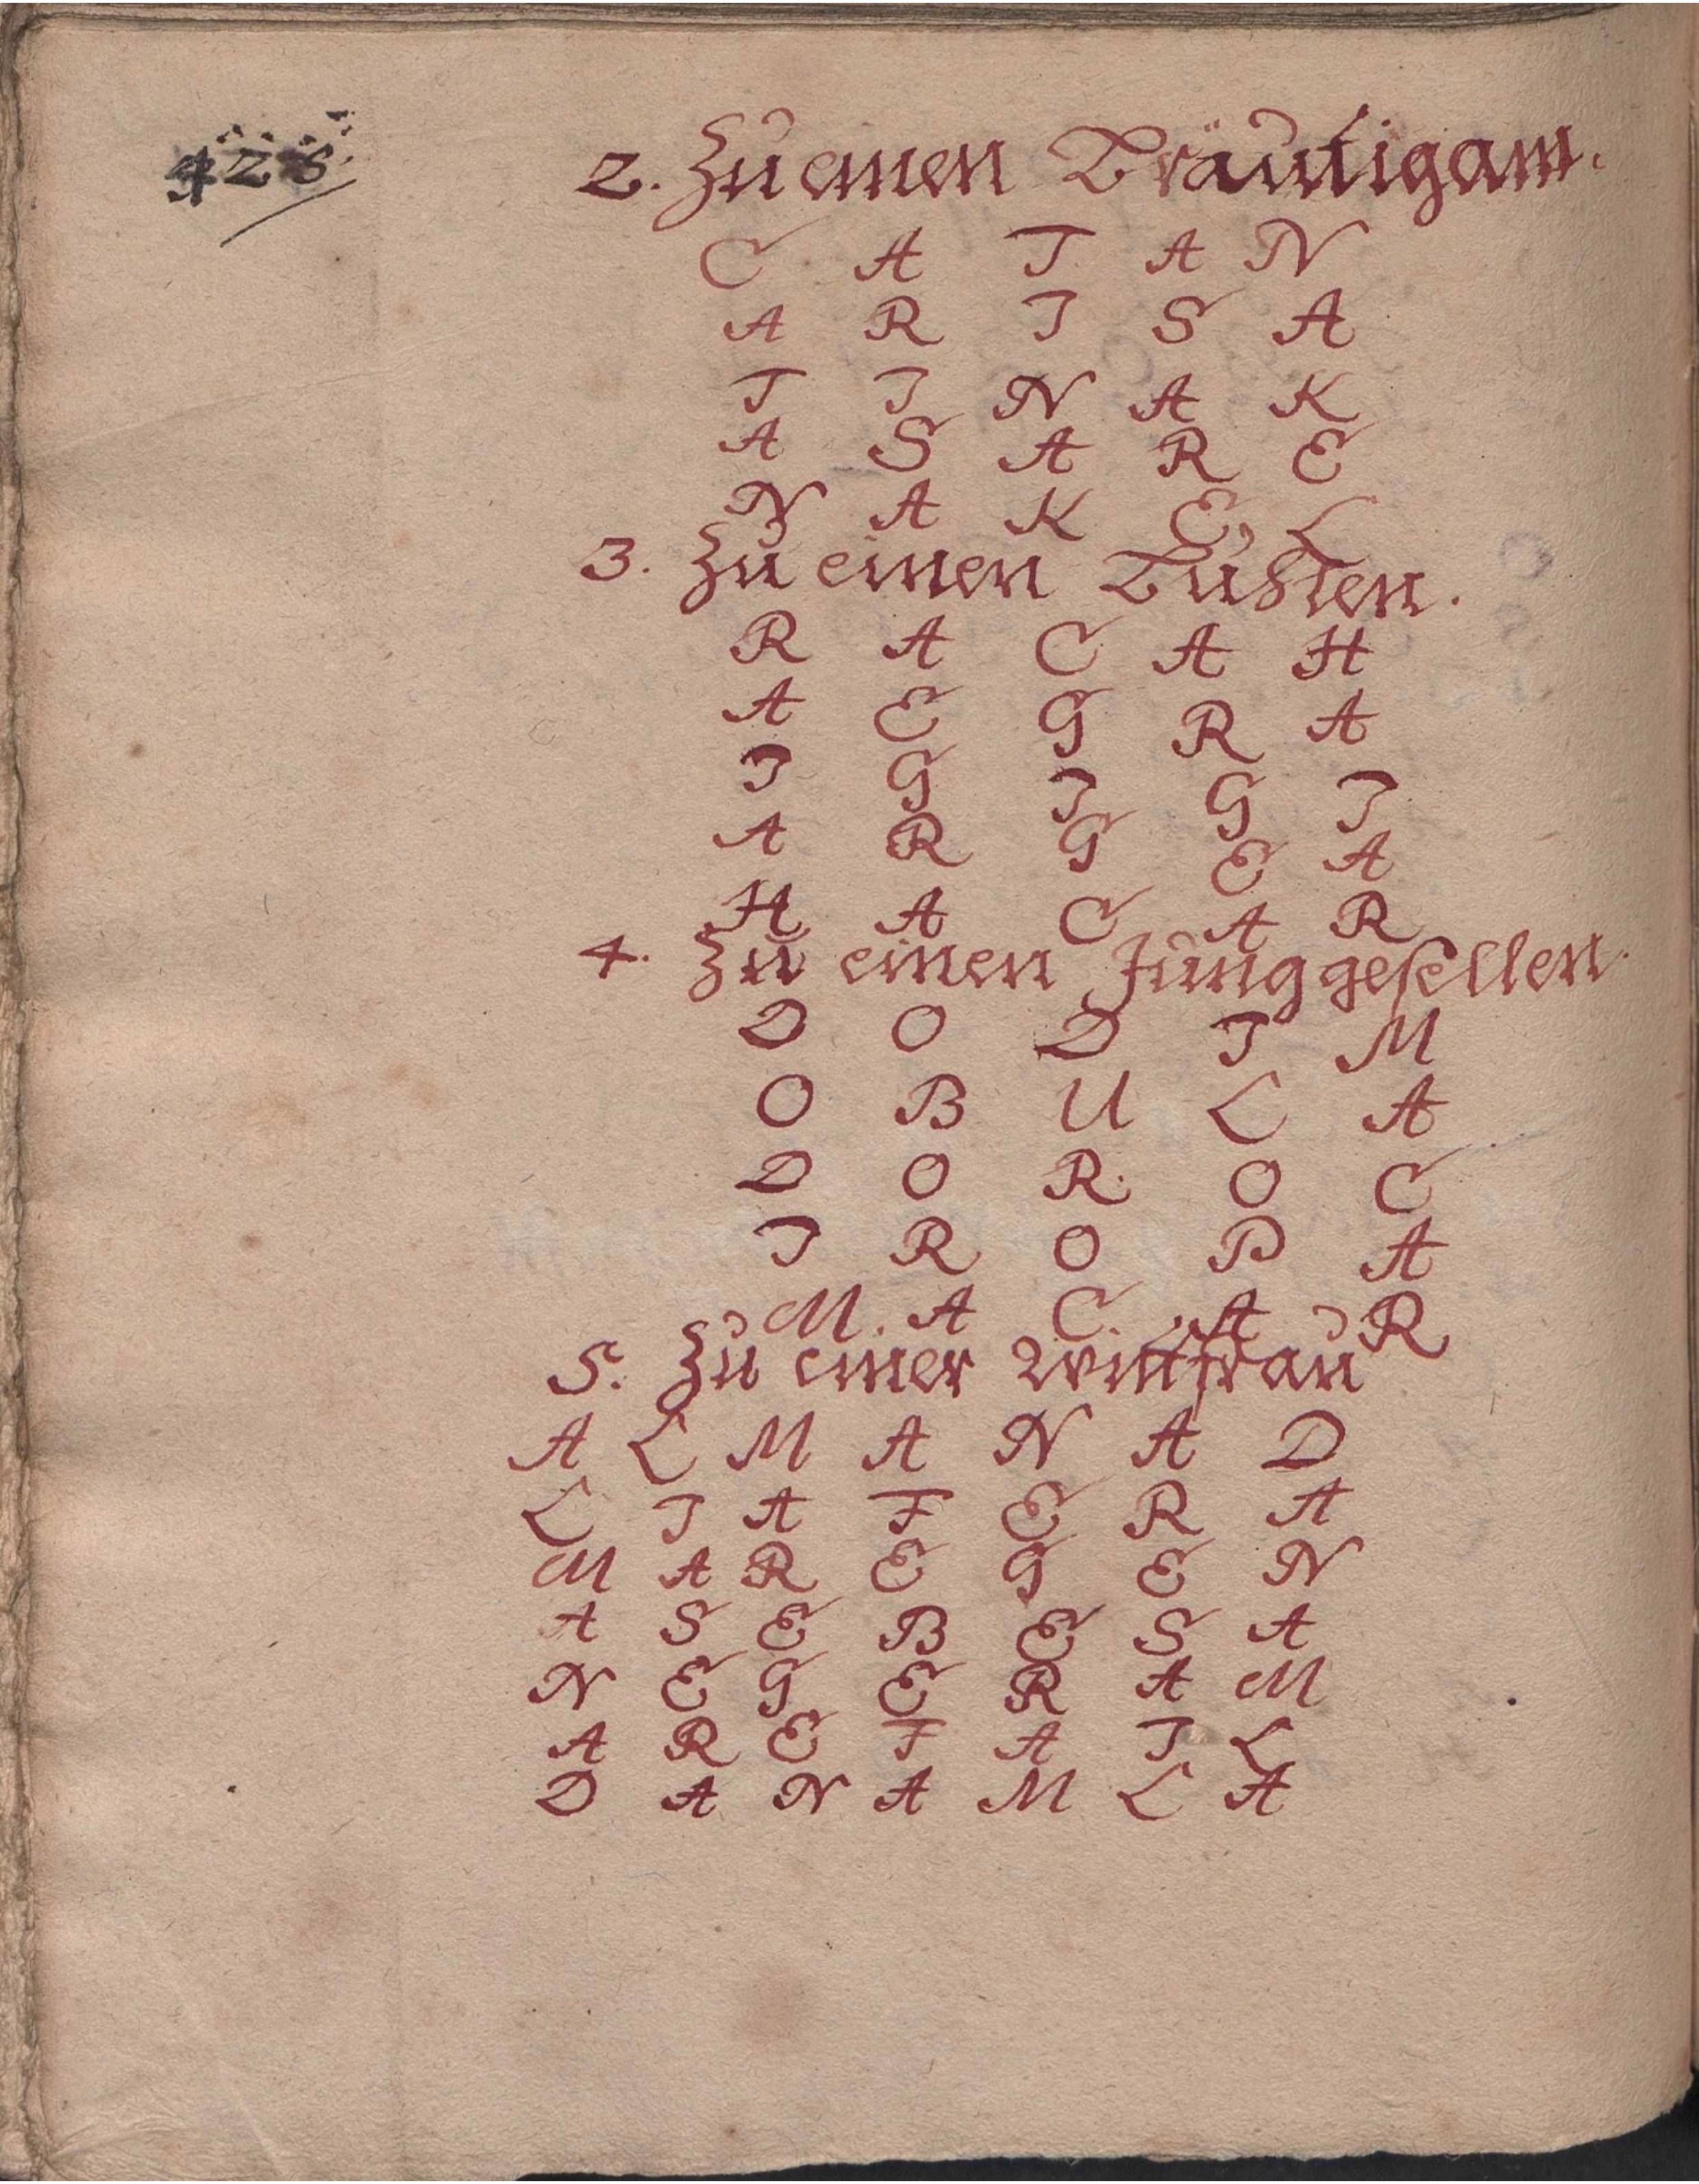 428.
2. Zu einen Bräutigam.
C A T A N
A R I S A
T I N A K
A S A R E
N A K E L
3. Zu einen Buhlen.
R A C A H
A E G R A
I G I G I
A R G E A
H A C A R
4. Zu einen Junggesellen.
D O D I M
O B U L A
D O R O C
I R O P A
M A C A R
5. Zu einer wittfrau
A L M A N A D
L I A F E R A
M A R E G E N
A S E B E S A
N E G E R A M
A R E F A I L
D A N A M L A